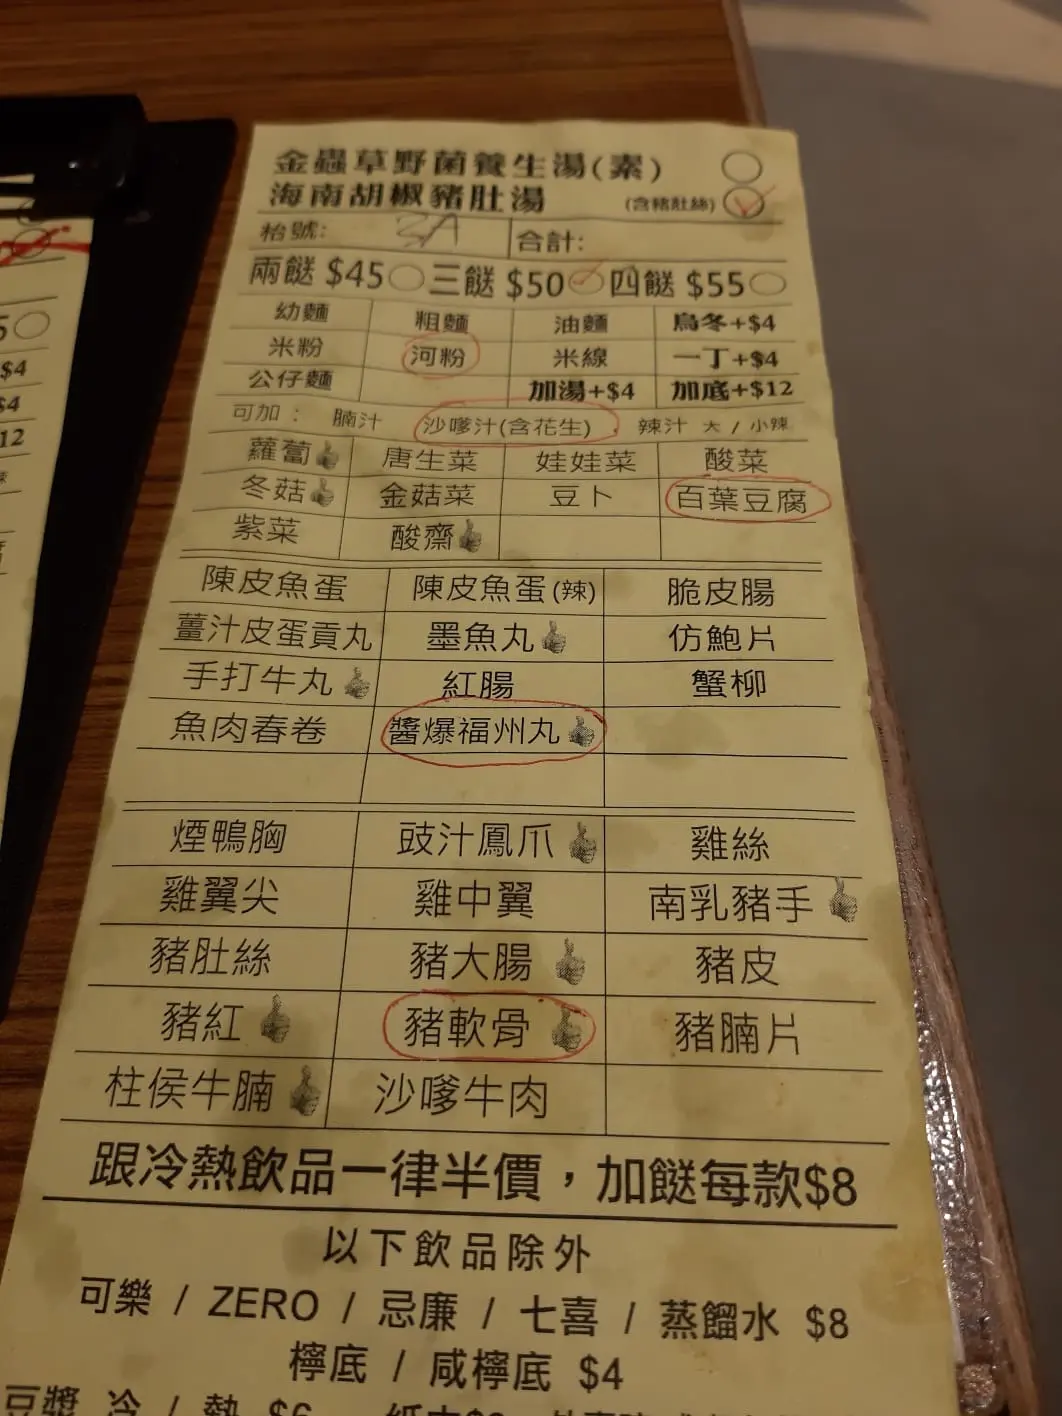 金蟲草野菌養生湯(素)
海南胡椒豬肚湯 (含豬肚絲)
枱號: 3A 合計:
兩餸 $45 三餸 $50 四餸 $55
幼麵 粗麵 油麵 烏冬+$4
米粉 河粉 米線 一丁+$4
公仔麵 加湯+$4 加底+$12
可加: 腩汁 沙嗲汁(含花生) 辣汁 大 / 小辣
蘿蔔 唐生菜 娃娃菜 酸菜
冬菇 金菇菜 豆卜 百葉豆腐
紫菜 酸齋
陳皮魚蛋 陳皮魚蛋(辣) 脆皮腸
薑汁皮蛋貢丸 墨魚丸 仿鮑片
手打牛丸 紅腸 蟹柳
魚肉春卷 醬爆福州丸
煙鴨胸 豉汁鳳爪 雞絲
雞翼尖 雞中翼 南乳豬手
豬肚絲 豬大腸 豬皮
豬紅 豬軟骨 豬腩片
柱侯牛腩 沙嗲牛肉
跟冷熱飲品一律半價，加餸每款$8
以下飲品除外
可樂 / ZERO / 忌廉 / 七喜 / 蒸餾水 $8
檸底 / 咸檸底 $4
豆漿 冷 / 熱 $6
5
$4
$4
12